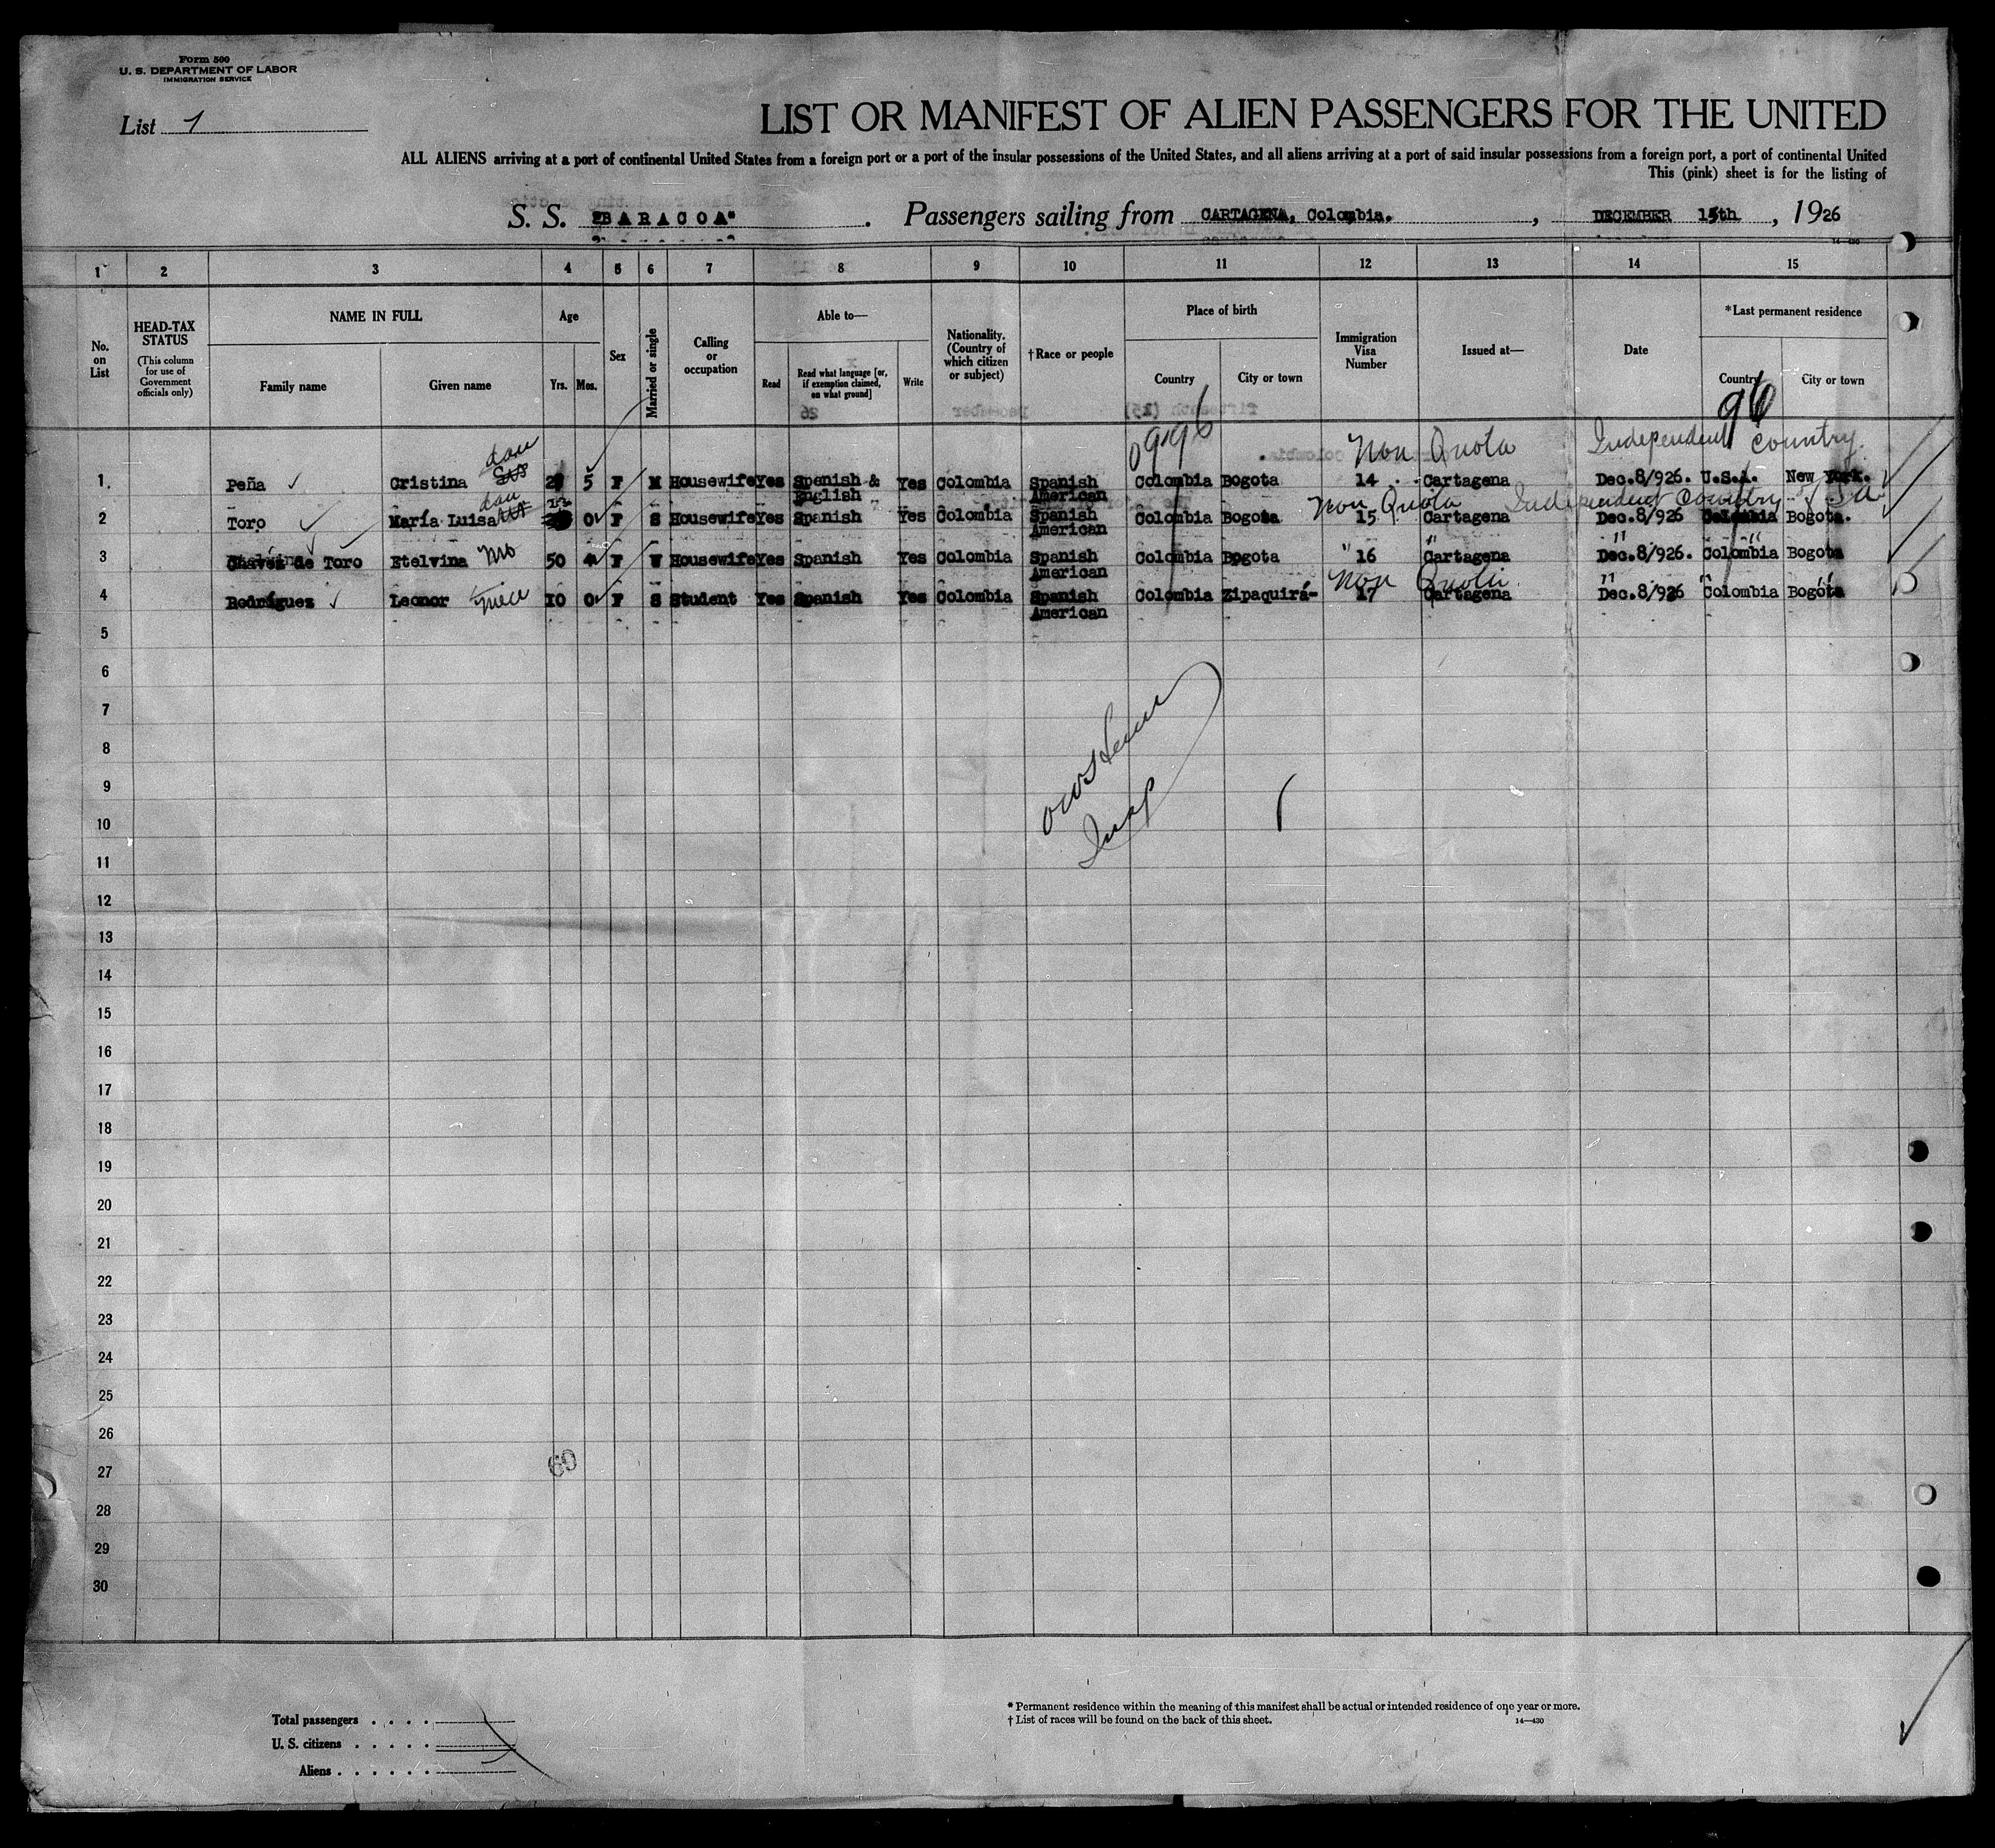 Form 500
U. S. DEPARTMENT OF LABOR
IMMIGRATION SERVICE
List 1
LIST OR MANIFEST OF ALIEN PASSENGERS FOR THE UNITED
ALL ALIENS arriving at a port of continental United States from a foreign port or a port of the insular possessions of the United States, and all aliens arriving at a port of said insular possessions from a foreign port, a port of continental United
This (pink) sheet is for the listing of
S. S. "BARACOA" . Passengers sailing from CARTAGENA, Colombia. , DECEMBER 15th , 1926
14-430
1 2 3 4 5 6 7 8 9 10 11 12 13 14 15
No. on List
HEAD-TAX STATUS (This column for use of Government officials only)
NAME IN FULL
Family name
Given name
Age
Yrs. Mos.
Sex
Married or single
Calling or occupation
Able to—
Read
Read what language [or, if exemption claimed, on what ground]
Write
Nationality. (Country of which citizen or subject)
†Race or people
Place of birth
Country
City or town
Immigration Visa Number
Issued at—
Date
*Last permanent residence
Country
City or town
96
Non Quota Independent country
dau
1 Peña Cristina 5 F M Housewife Yes Spanish & English Yes Colombia Spanish American Colombia Bogota 14 Cartagena Dec.8/926. U.S.A. New York.
dau Non Quota Independent Country
2 Toro María Luisa 0 F S Housewife Yes Spanish Yes Colombia Spanish American Colombia Bogota 15 Cartagena Dec.8/926 Colombia Bogota.
" " " "
3 de Toro Etelvina Mo 50 4 F W Housewife Yes Spanish Yes Colombia Spanish American Colombia Bogota 16 Cartagena Dec.8/926. Colombia Bogota
Non Quota " " "
4 Rodríguez Leonor niece 10 0 F S Student Yes Spanish Yes Colombia Spanish American Colombia Zipaquirá- 17 Cartagena Dec.8/926 Colombia Bogota
5
6
7
8
9
Insp
10
11
12
13
14
15
16
17
18
19
20
21
22
23
24
25
26
69
27
28
29
30
* Permanent residence within the meaning of this manifest shall be actual or intended residence of one year or more.
† List of races will be found on the back of this sheet. 14—430
Total passengers . . . .
U. S. citizens . . . . .
Aliens . . . . . .